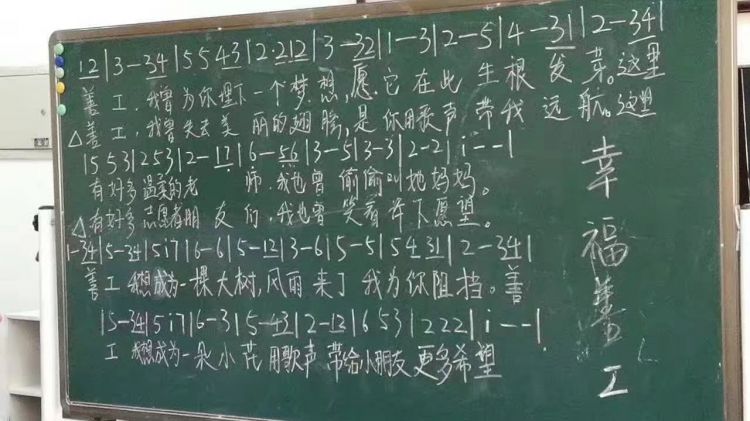 12|3-34|5543|2·212|3-32|1-3|2-5|4-31|2-34|
善工,我曾为你埋下一个梦想,愿它在此生根发芽。这里
△善工,我曾失去美丽的翅膀,是你用歌声带我远航。这里
1553|253|2-17|6-56|3-5|3-3|2-2|i--|
有好多温柔的老师.我也曾偷偷叫她妈妈。
△有好多志愿者朋友们.我也曾笑着许下愿望。
1-34|5-34|5i7|6-6|5-12|3-6|5-5|5431|2-34|
善工我想成为一棵大树,风雨来了我为你阻挡。善
|5-34|5i7|6-3|5-43|2-12|653|222|i--|
工我想成为一朵小花用歌声带给小朋友更多希望
幸福善工